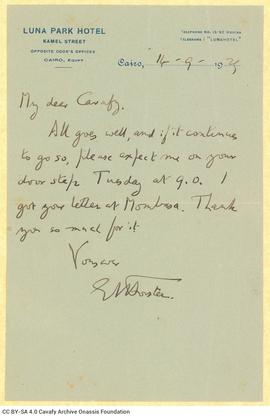 LUNA PARK HOTEL
KAMEL STREET
OPPOSITE COOK'S OFFICES
CAIRO, EGYPT
TELEGRAMS : "LUNAHOTEL"
Cairo, 14 - 9 - 192
My dear Cavafy.
All goes well, and if it continues
to go so, please expect me on your
door step Tuesday at 9.0. I
got your letter at Mombasa. Thank
you so much for it
Yours ever
EMForster.
CC BY-SA 4.0 Cavafy Archive Onassis Foundation